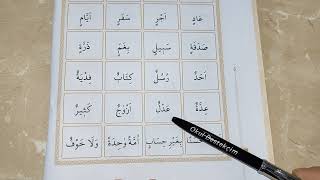 عَادٍ اَجْرٍ سَفَرٍ اَيَّامٍ
صَدَقَةٍ سَبِيلٍ بِغَمٍّ ذَرَّةٍ
اَحَدٌ رُسُلٌ كِتَابٌ فِدْيَةٌ
عِدَّةٌ عَدْلٌ اَزْوَاجٌ كَثِيرٌ
بِغَيْرِ حِسَابٍ اُمَّةً وَاحِدَةً وَلَا خَوْفٌ
Okul Destekçim